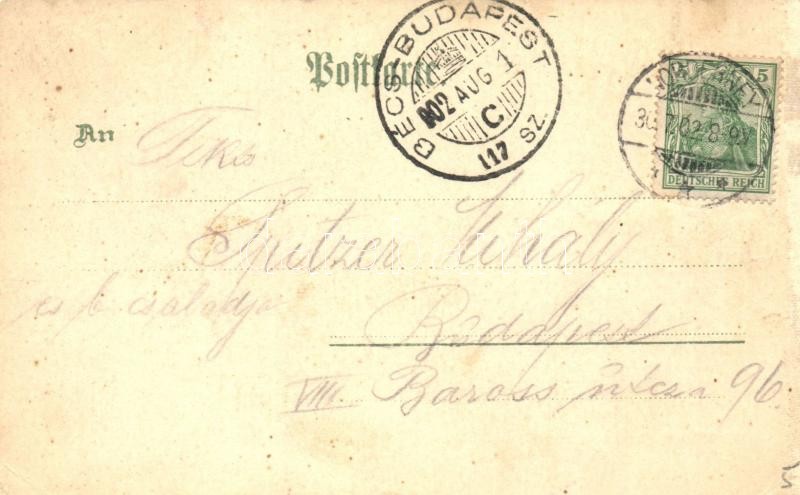 Postkarte
BÉCS-BUDAPEST
902 AUG 1
C
117 SZ.
NORDERNEY
30 7 02 8-9V
5
DEUTSCHES REICH
An
Teks
Spitzer Mihály
és b. családja
Budapest
VIII. Baross útcza 96.